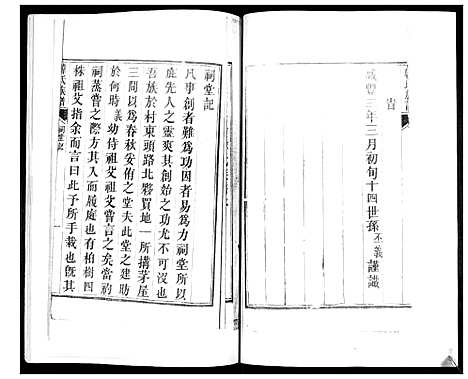 旹
咸豐三年三月初旬十四世孫丕義謹識
祠堂記
凡事創者難爲功因者易爲力祠堂所以
旌先人之靈爽其創始之功尤不可沒也
吾族於村東頭路北夥買地一所搆茅屋
三間以爲春秋安侑之堂夫此堂之建昉
於何時義幼侍祖父祖父嘗言之矣當礿
祠蒸嘗之際方其入而履庭也有柏樹四
株祖父指余而言曰此予所手栽也旣其
氏族譜
祠堂記